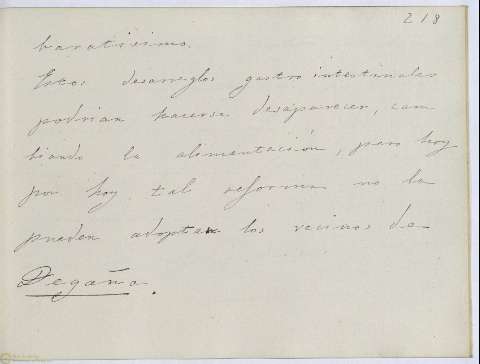 218
baratisimo.
Estos desarreglos gastro intestinales
podrian hacerse desaparecer, cam
biando la alimentación, pero hoy
por hoy tal reforma no la
pueden adoptar los vecinos de
Degaña.